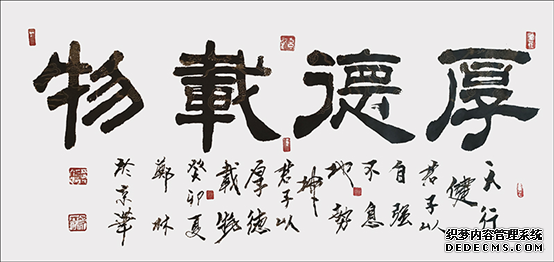 厚德載物
天行
健
君子以
自强
不息
地势
坤
君子以
厚德
載物
癸卯夏
鄭林
於京華
织梦内容管理系统
DEDECMS.COM